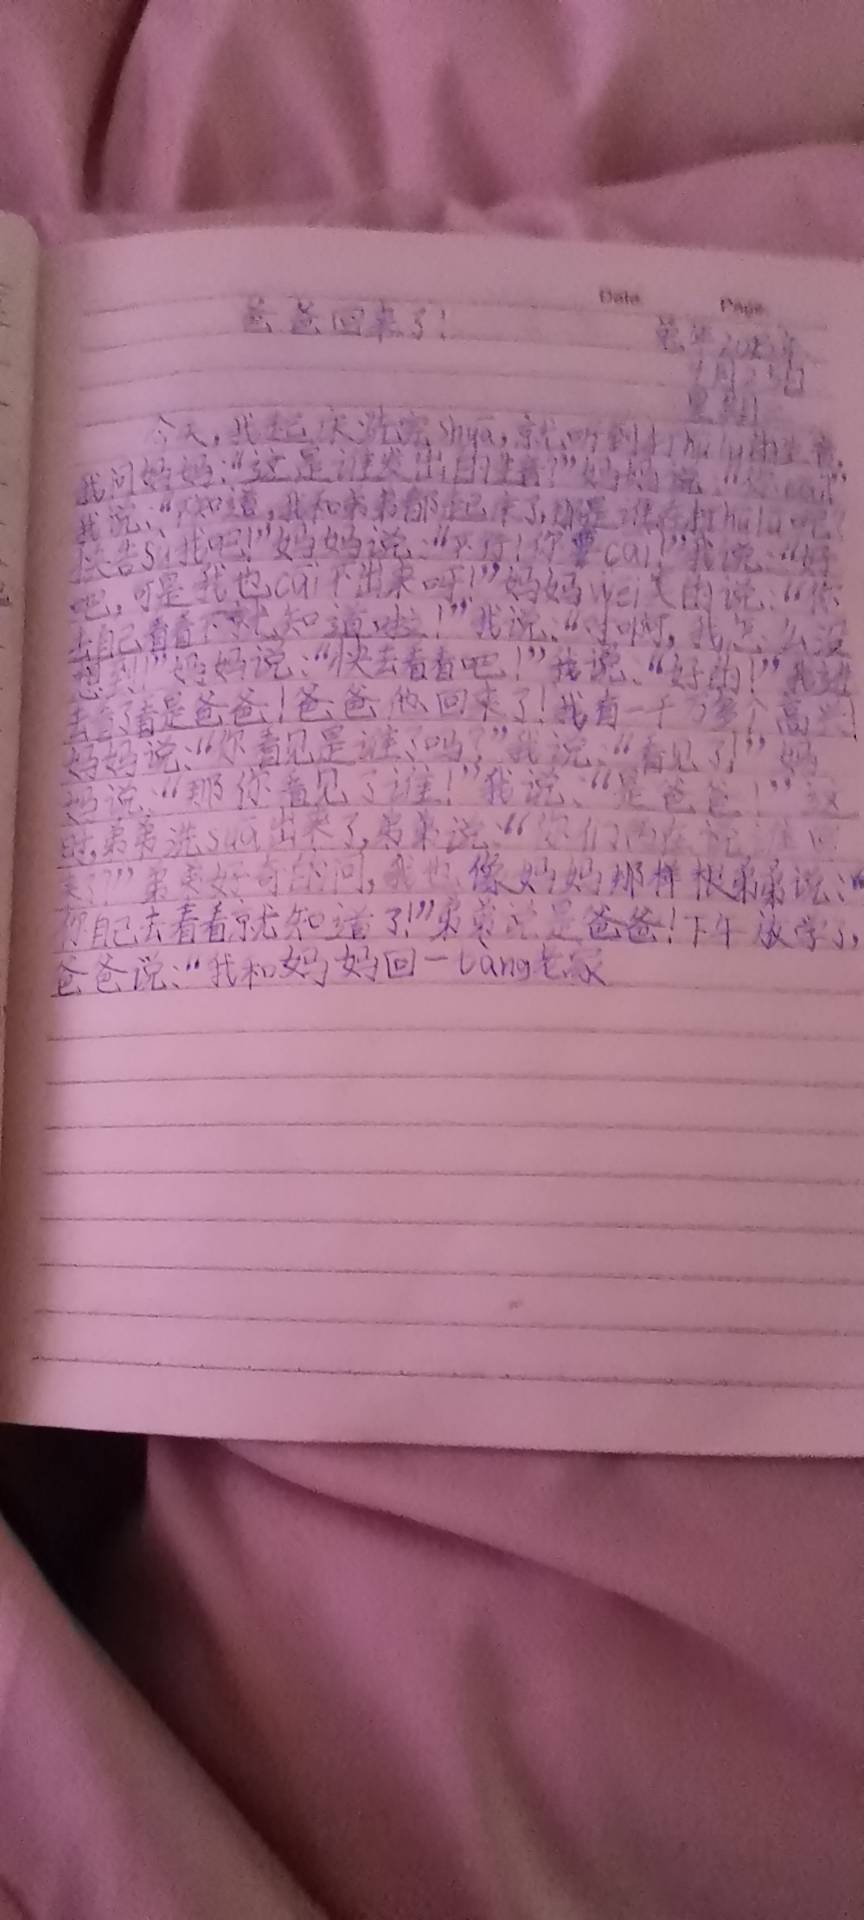 Date Page
爸爸回来了!
年20 年
月2 日
星期
今天,我起床洗完shua,就听到打hulu的生音,
我问妈妈:“这是谁发出的生音?”妈妈说:“你cai?”
我说:“不知道,我和弟弟都起来了,那是谁在打hulu呢?
快告su我吧!”妈妈说:“不行!你要cai!”我说:“好
吧,可是我也cai不出来呀!”妈妈wei笑的说:“你
去自己看看不就知道啦!”我说:“对啊,我怎么没
想到!”妈妈说:“快去看看吧!”我说:“好的!”我进
去看了看是爸爸!爸爸他回来了!我有一千万多个高兴!
妈妈说:“你看见是谁了吗?”我说:“看见了!”妈
妈说:“那你看见了谁!”我说:“是爸爸!”这
时,弟弟洗sua出来了,弟弟说:“你们两在说谁回
来了?”弟弟好奇的问,我也像妈妈那样根弟弟说:“
你自己去看看就知道了!”弟弟说是爸爸!下午放学了,
爸爸说:“我和妈妈回一tang老家